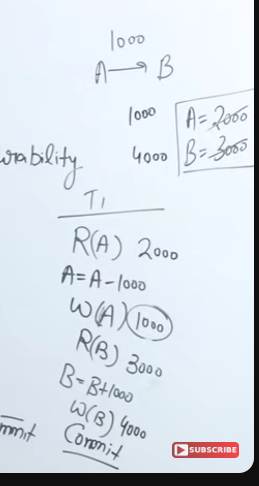 1000
A → B
1000 A = 2000
4000 B = 3000
T1
R(A) 2000
A = A - 1000
W(A) 1000
R(B) 3000
B = B + 1000
W(B) 4000
Commit
SUBSCRIBE